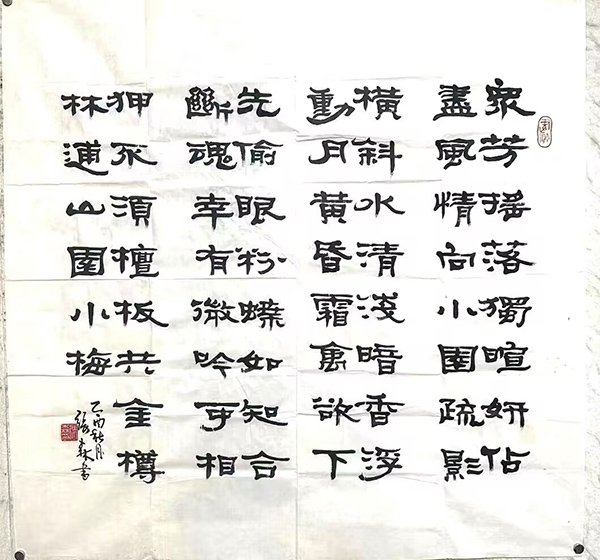 衆芳搖落獨暄妍佔
盡風情向小園疏影
橫斜水清淺暗香浮
動月黃昏霜禽欲下
先偷眼粉蝶如知合
斷魂幸有微吟可相
狎不須檀板共金樽
林逋山園小梅
乙酉秋月
張森書